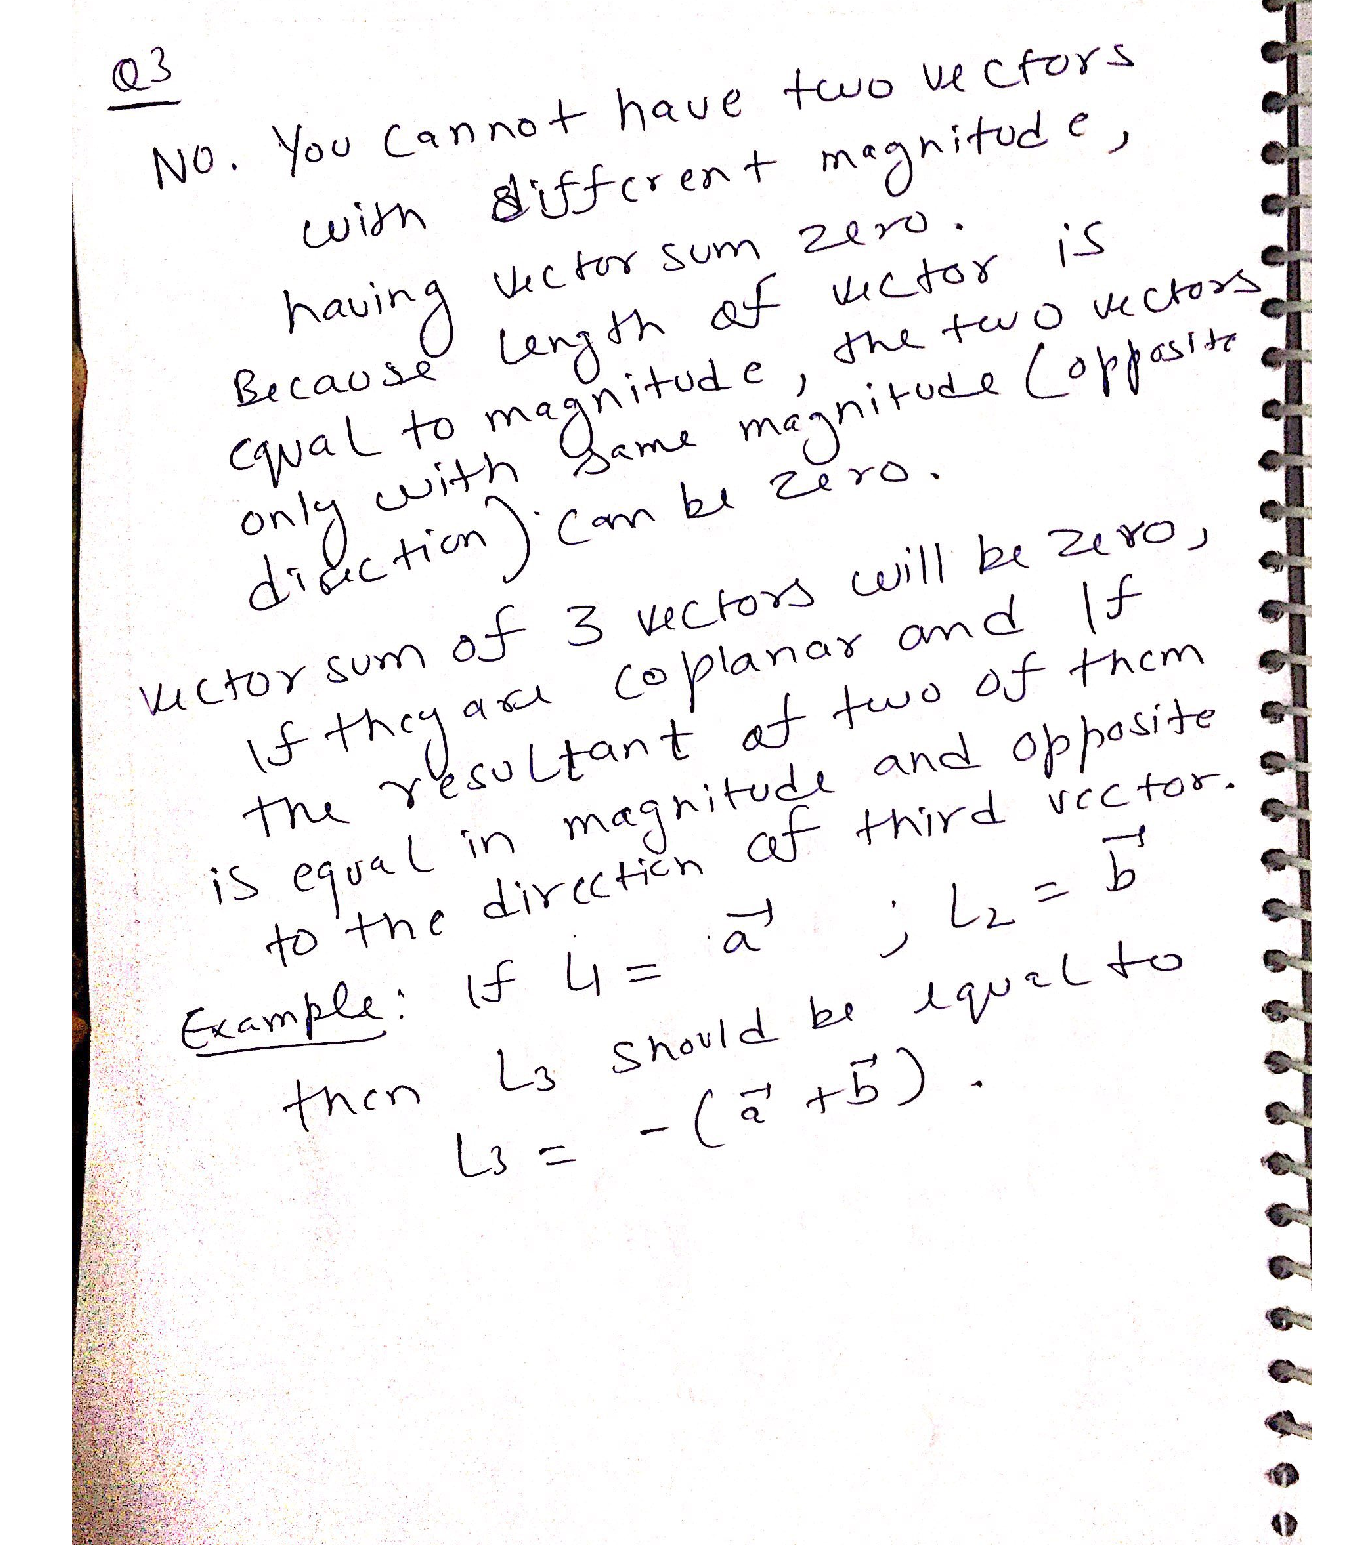 Q3
NO. You cannot have two vectors
with different magnitude,
having vector sum zero.
Because length of vector is
equal to magnitude, the two vectors
only with same magnitude (opposite
direction) can be zero.
vector sum of 3 vectors will be zero,
If they are coplanar and If
the resultant of two of them
is equal in magnitude and opposite
to the direction of third vector.
Example: If L1 = a⃗ ; L2 = b⃗
then L3 should be equal to
L3 = -(a⃗ + b⃗).